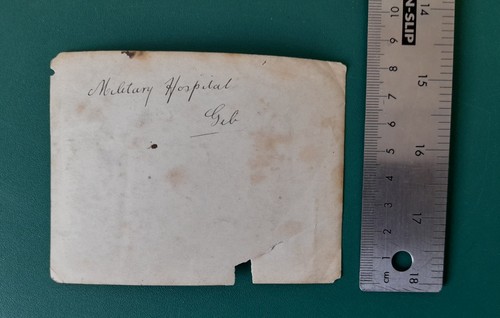 Military Hospital
Gib
N-SLIP
14
15
16
17
18
10
9
8
7
6
5
4
3
2
1
cm